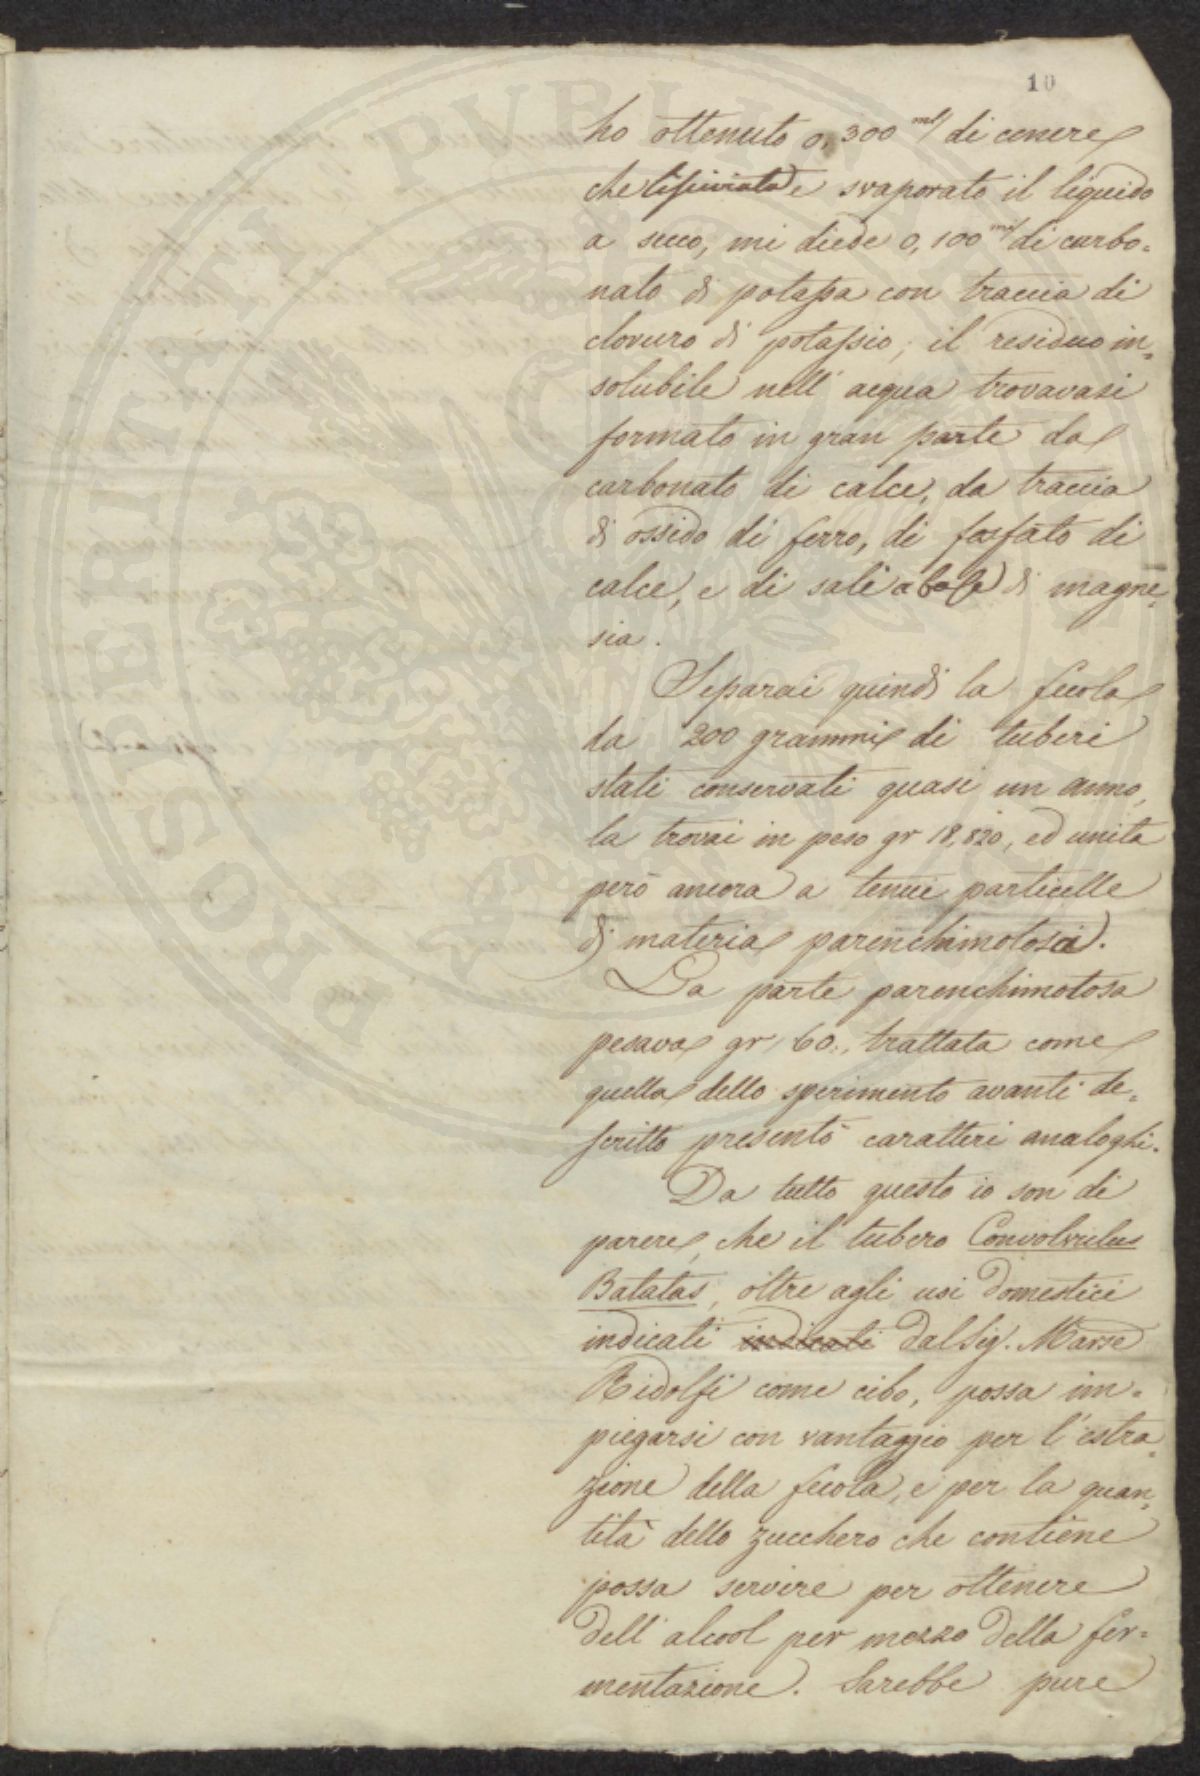 10
ho ottenuto 0,300 mil/ di cenere
che lisciviata e svaporato il liquido
a secco, mi diede 0,100 mil/ di carbo=
nato di potassa con traccia di
cloruro di potassio; il residuo in=
solubile nell' acqua trovavasi
formato in gran parte da
carbonato di calce, da traccia
di ossido di ferro, di fosfato di
calce, e di sali a base di magne=
sia.
Separai quindi la fecola
da 200 grammi di tuberi
stati conservati quasi un anno,
la trovai in peso gr 18,820, ed unita
però ancora a tenui particelle
di materia parenchimotosa.
La parte parenchimotosa
pesava gr 60., trattata come
quella dello sperimento avanti de=
scritto presentò caratteri analoghi.
Da tutto questo io son di
parere, che il tubero Convolvulus
Batatas, oltre agli usi domestici
indicati indicati dal Sig. Marse
Ridolfi come cibo, possa im=
piegarsi con vantaggio per l'estra=
zione della fecola, e per la quan=
tità dello zucchero che contiene
possa servire per ottenere
dell' alcool per mezzo della fer=
mentazione. Sarebbe pure
PROSPERITATI PVBLICAE